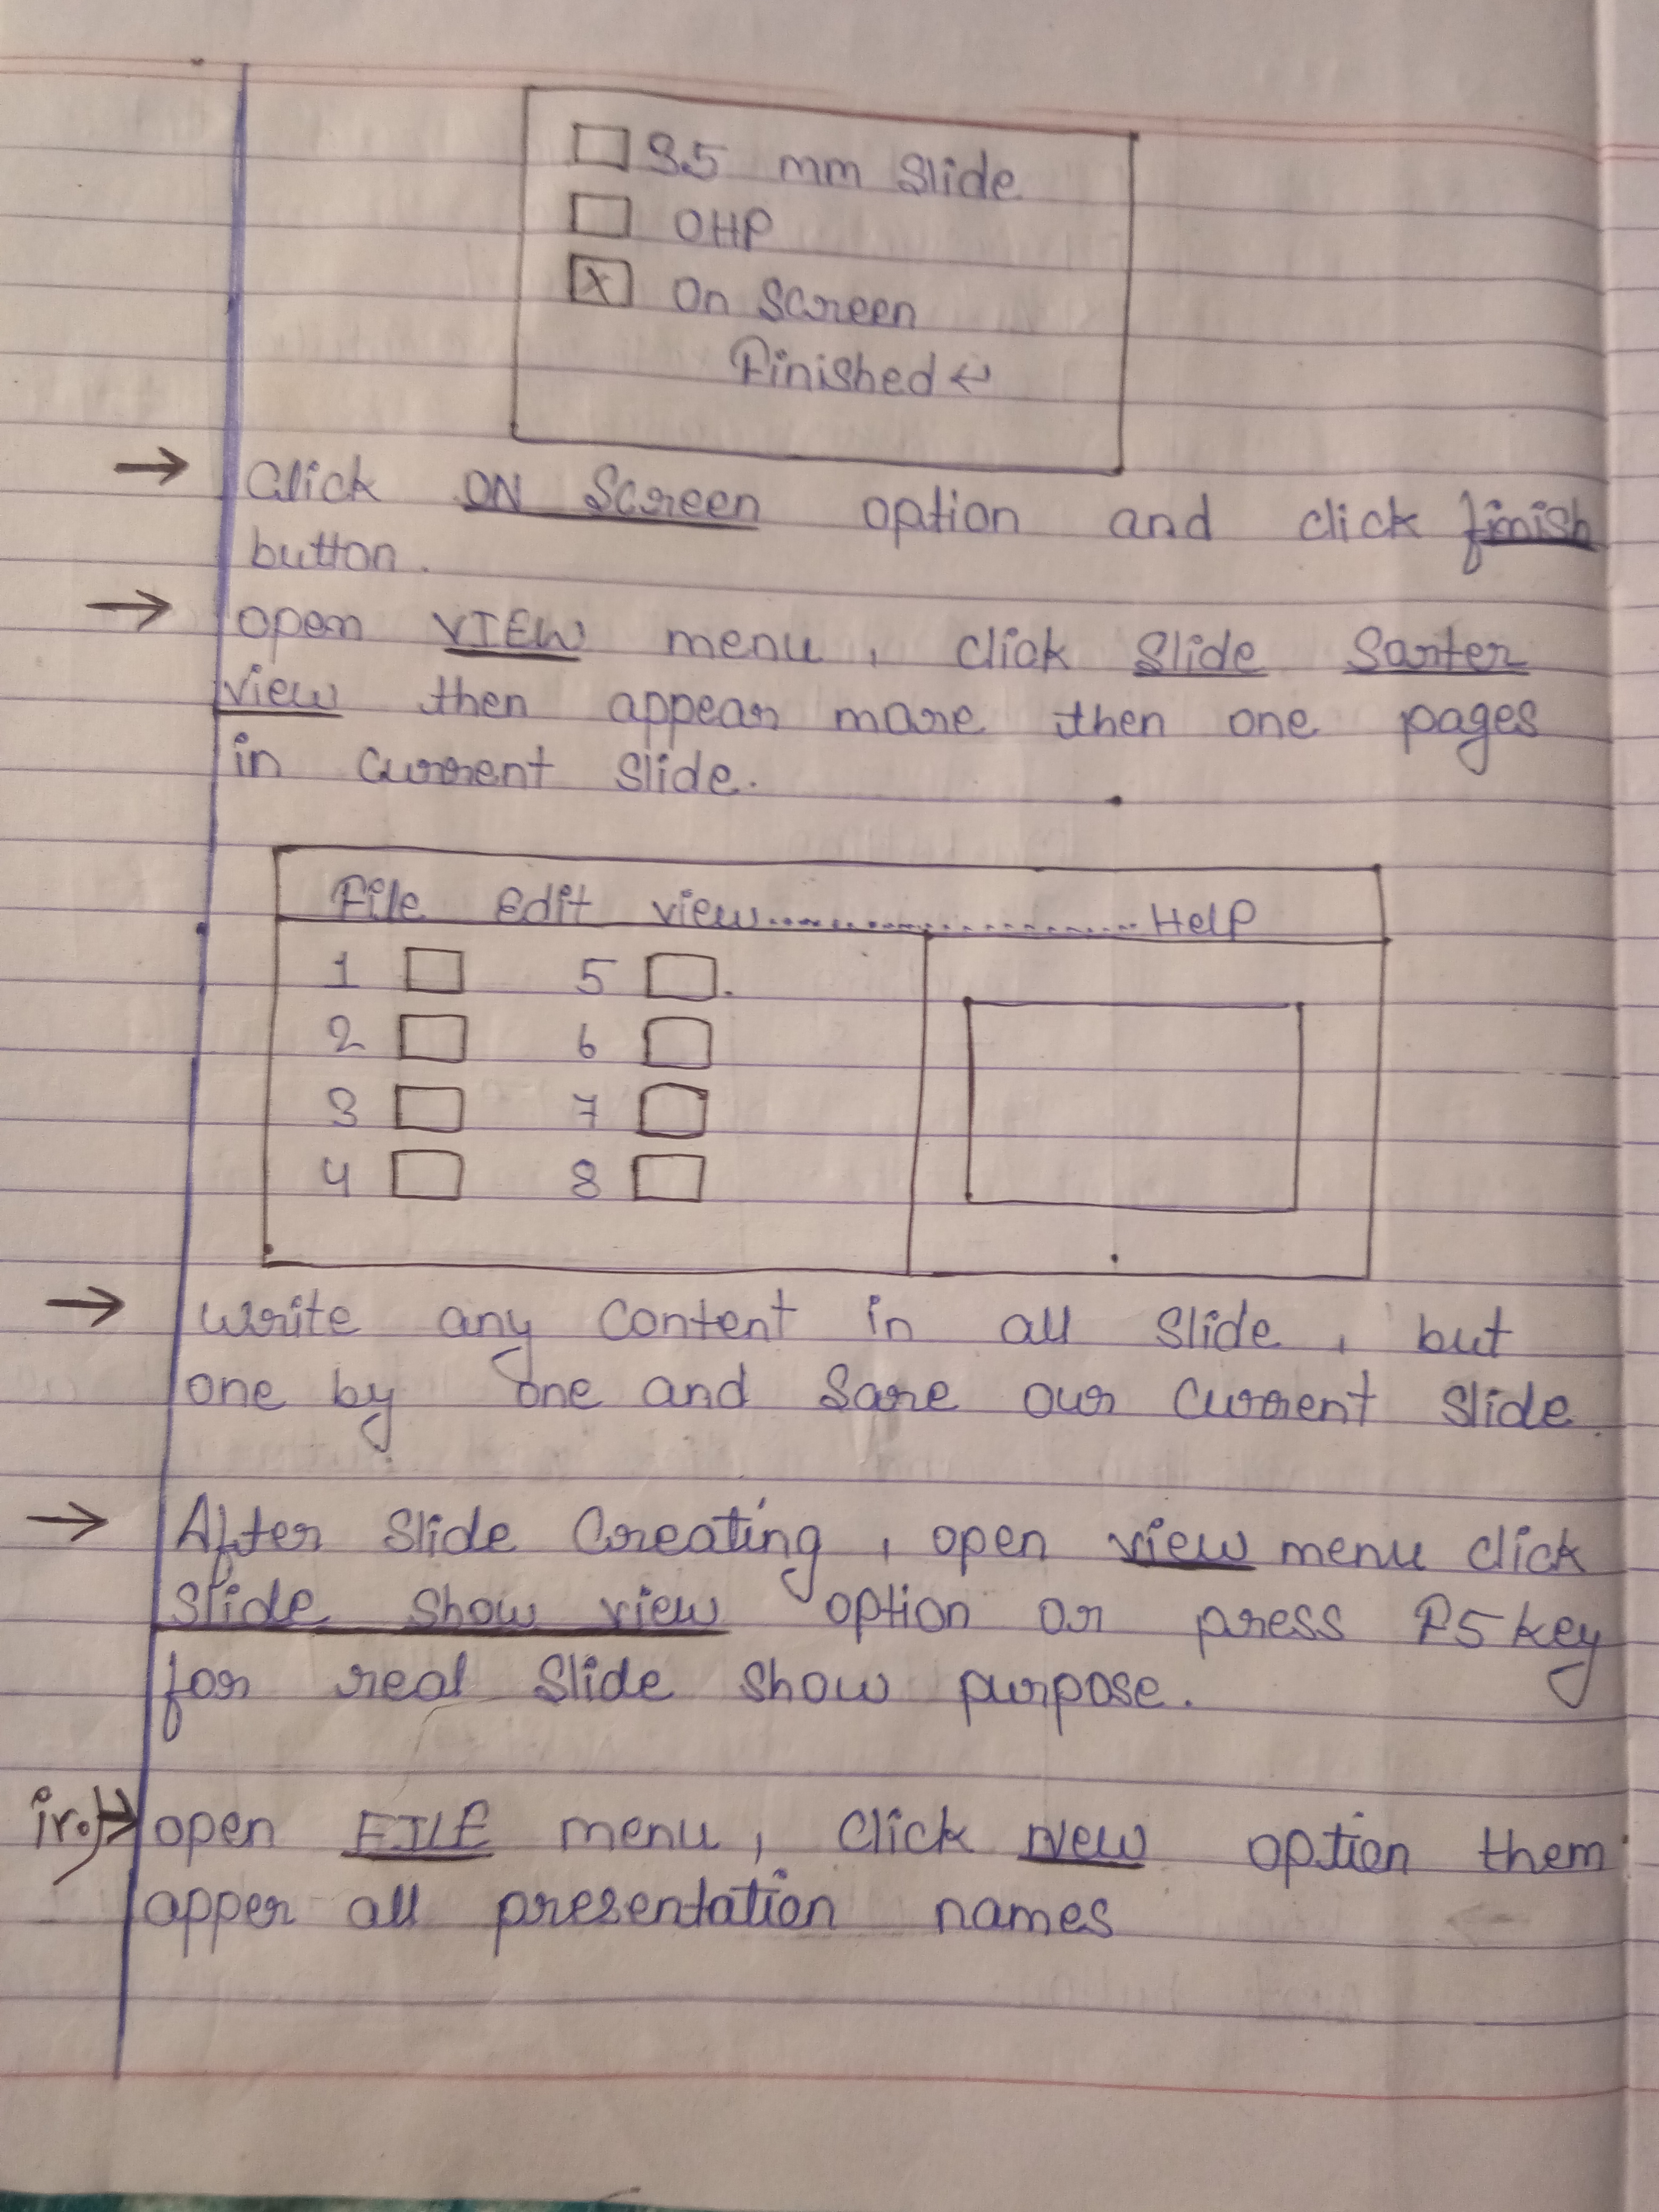 35 mm Slide
OHP
X On Screen
Finished ↵
→ Click ON Screen option and click finish
button.
→ open VIEW menu, click Slide Sorter
view then appear more then one pages
in current slide.
File Edit view.......................... Help
1 5
2 6
3 7
4 8
→ Write any content in all slide, but
one by one and save our current slide.
→ After slide creating, open view menu click
Slide show view option or press F5 key
for real slide show purpose.
iv.) → open FILE menu, click New option them
apper all presentation names